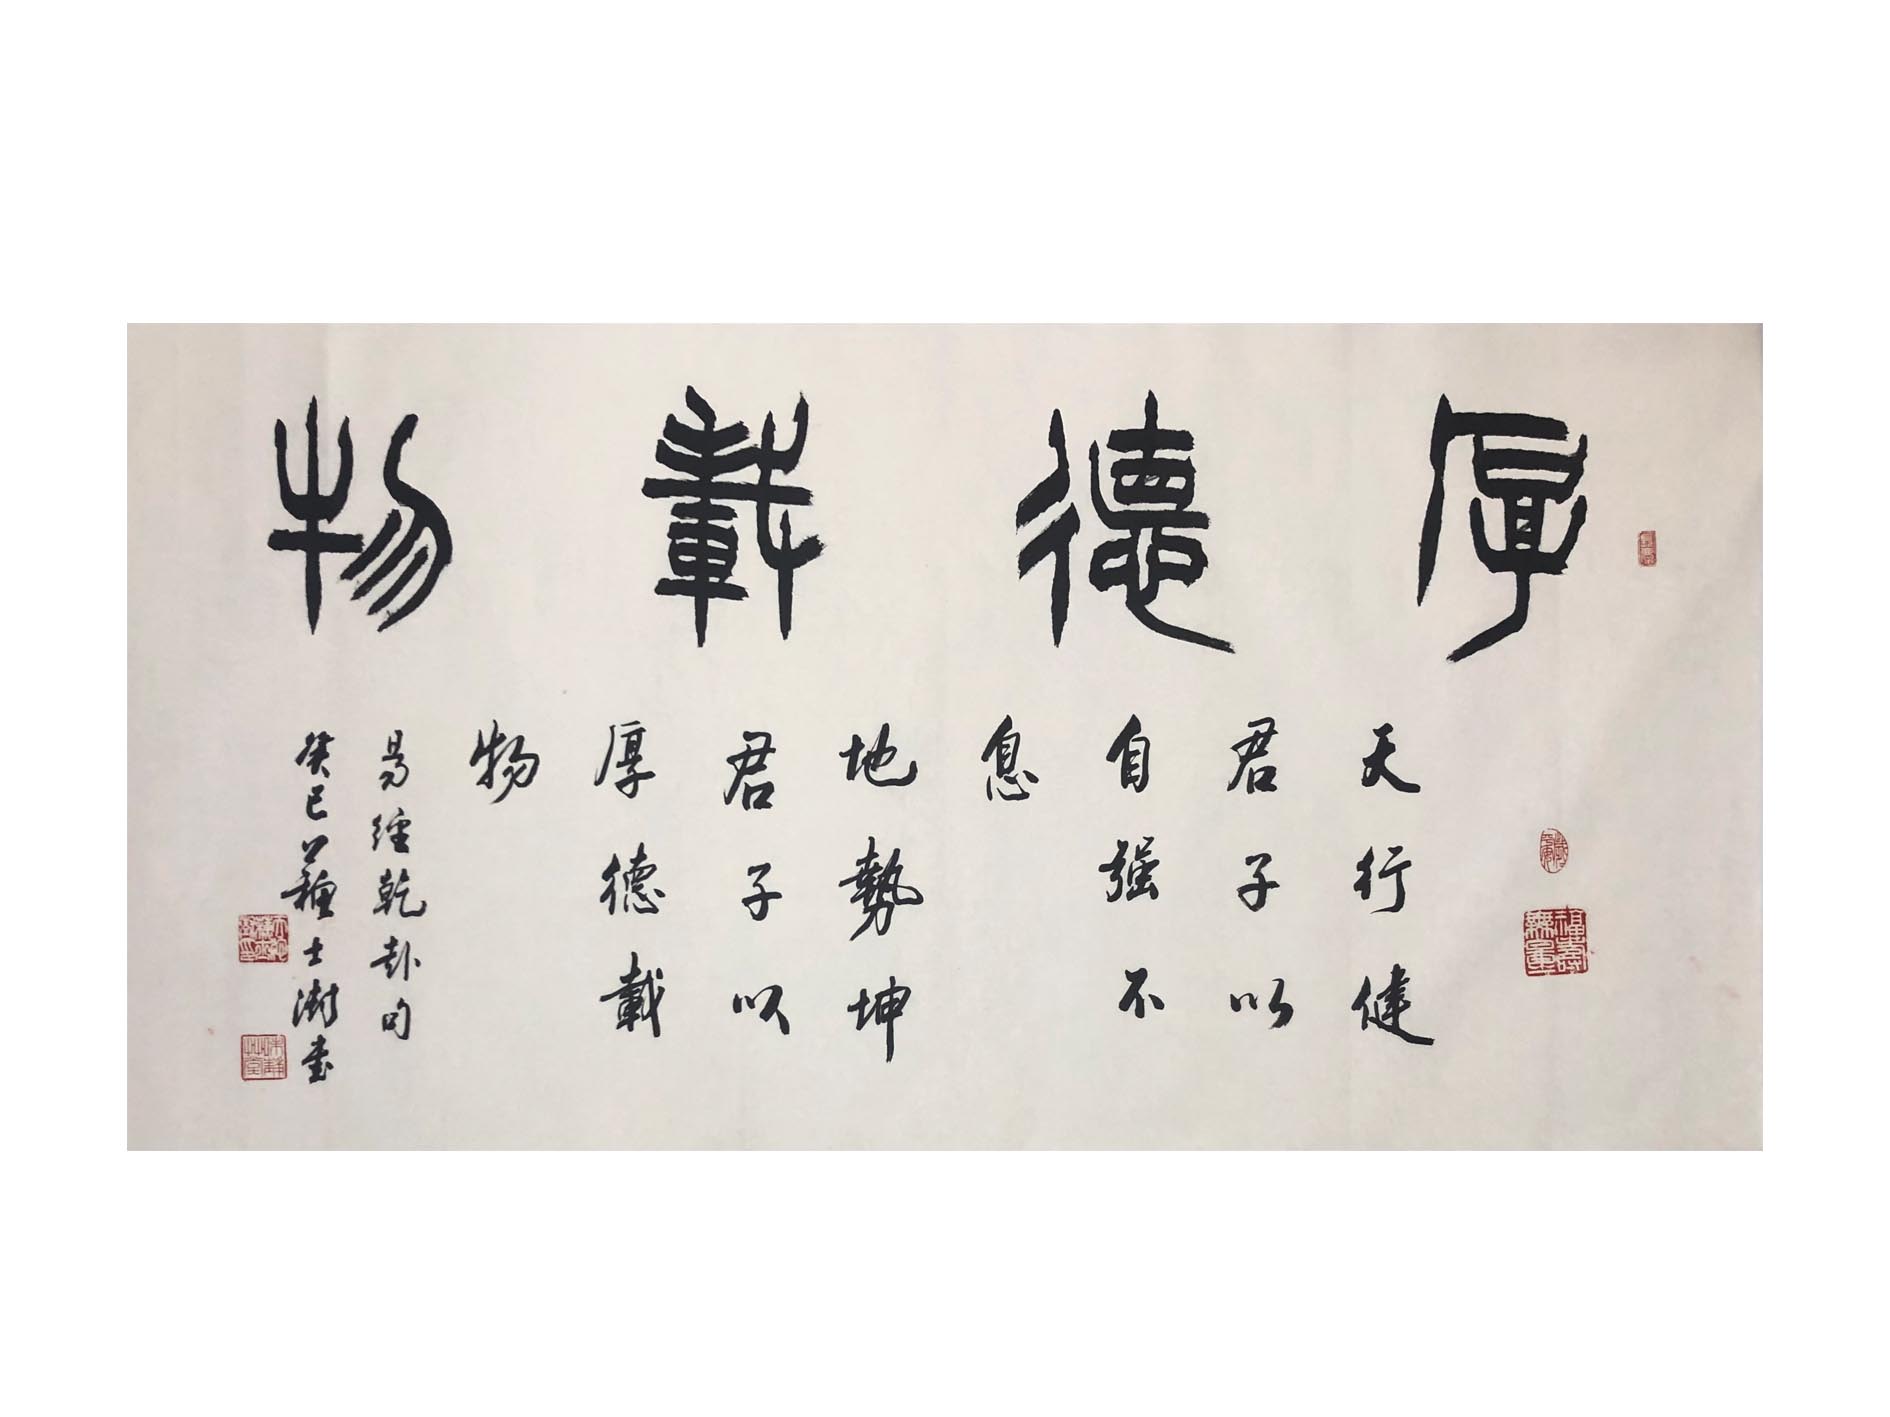 厚德載物
天行健
君子以
自強不
息
地勢坤
君子以
厚德載
物
易經乾卦句
癸巳蘇士澍書
福壽無量